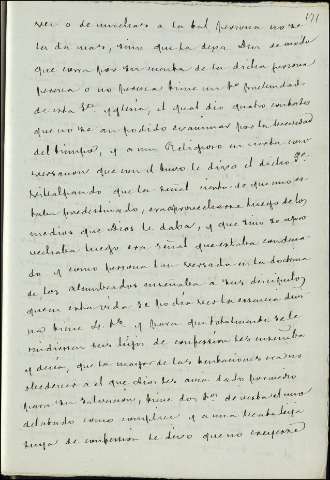 171
ver o de muchas a la tal persona no se
la da mas, sino que la dexa Dios de modo
que corra por su cuenta de la dicha persona
peresca o no peresca tiene un tº presentado
de esta Stª yglesia, el qual dio quatro contestes
que no se an podido examinar por la brevedad
del tiempo, y a un Religioso en cierta con
versacion que con el tuvo le dixo el dicho Pe.
Villalpando que la señal cierta de que uno es
taba predestinado, era aprovecharse luego de los
medios que Dios le daba, y que sino se apro
vechaba luego era señal que estaba condena
do y como persona tan versada en la doctrina
de los alumbrados enseñaba a sus discipulos
que en esta vida se podia ver la essencia divi
na tiene tº y para que totalmente se le
rindiesen sus hijos de confession les enseñaba
y decia, que la mayor de las tentaciones era no
obedecer a el que Dios les avia dado por medio
para su salvacion, tiene dos tº de vista el uno
delatado como complice y a una beata hija
suya de confession le dixo que no creyesse